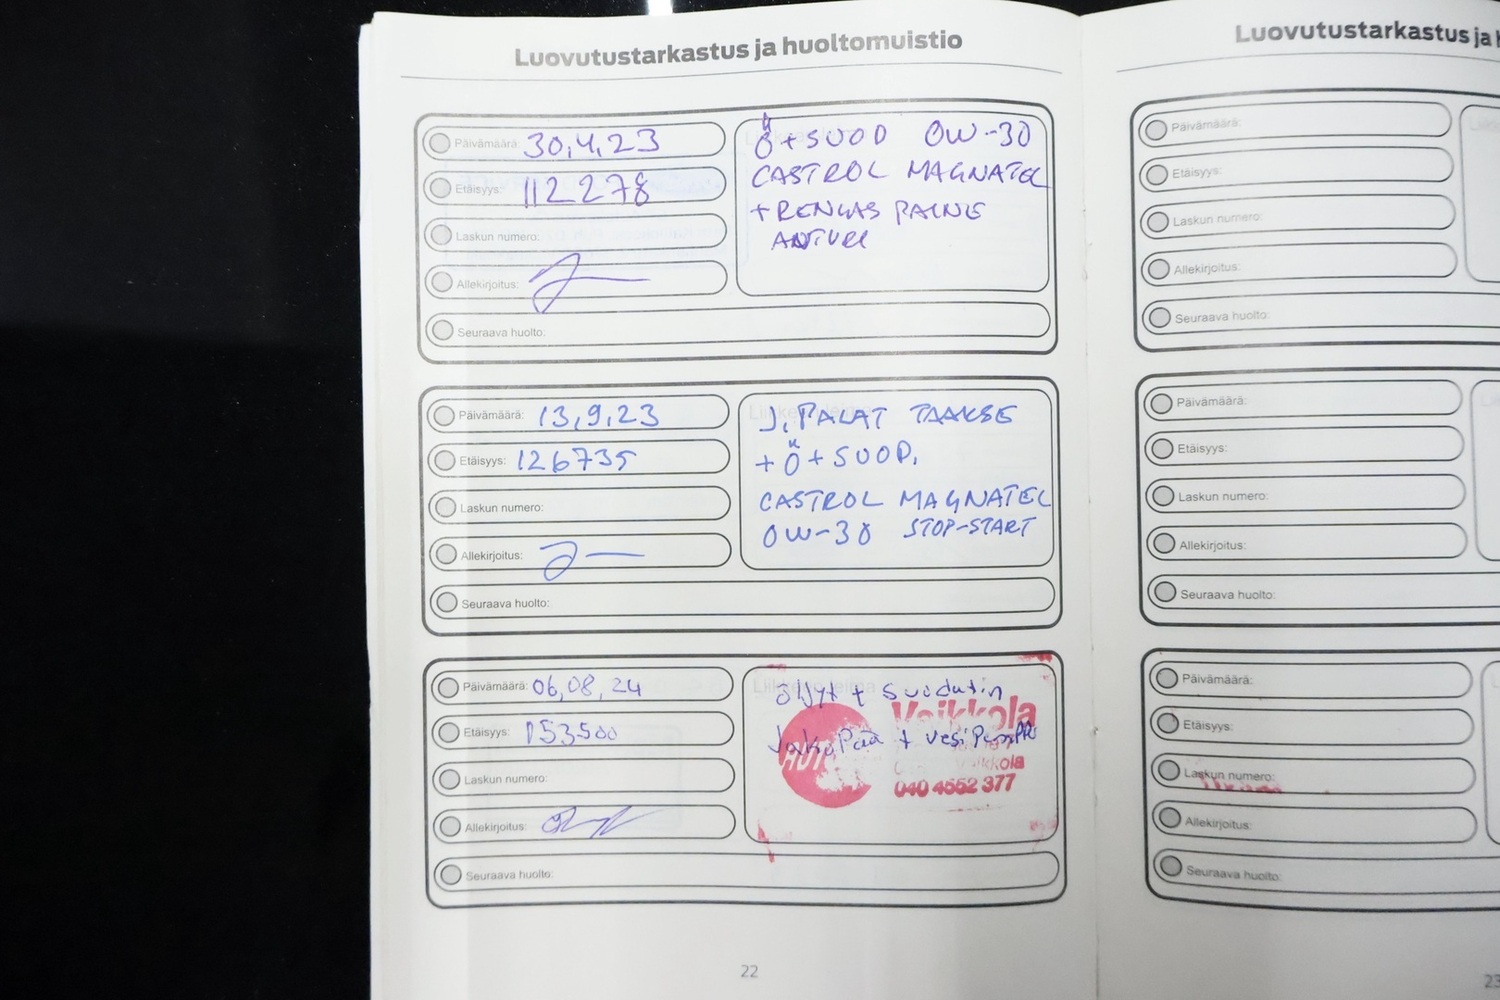 Luovutustarkastus ja huoltomuistio
Päivämäärä: 30,4,23
Etäisyys: 112278
Laskun numero:
Allekirjoitus:
Seuraava huolto:
Ö + SUOD 0W-30
CASTROL MAGNATEC
+ RENGAS PAINE
ANTURI
Päivämäärä: 13,9,23
Etäisyys: 126735
Laskun numero:
Allekirjoitus:
Seuraava huolto:
J, PALAT TAAKSE
+ Ö + SUOD,
CASTROL MAGNATEC
0W-30 STOP-START
Päivämäärä: 06,08,24
Etäisyys: 153500
Laskun numero:
Allekirjoitus:
Seuraava huolto:
Liikkeen leima
öljyt + suodatin
Veikkola
Jakopää + vesipumppu
Veikkola
040 4552 377
22
Luovutustarkastus ja
Päivämäärä:
Etäisyys:
Laskun numero:
Allekirjoitus:
Seuraava huolto:
Päivämäärä:
Etäisyys:
Laskun numero:
Allekirjoitus:
Seuraava huolto:
Päivämäärä:
Etäisyys:
Laskun numero:
Allekirjoitus:
Seuraava huolto:
23